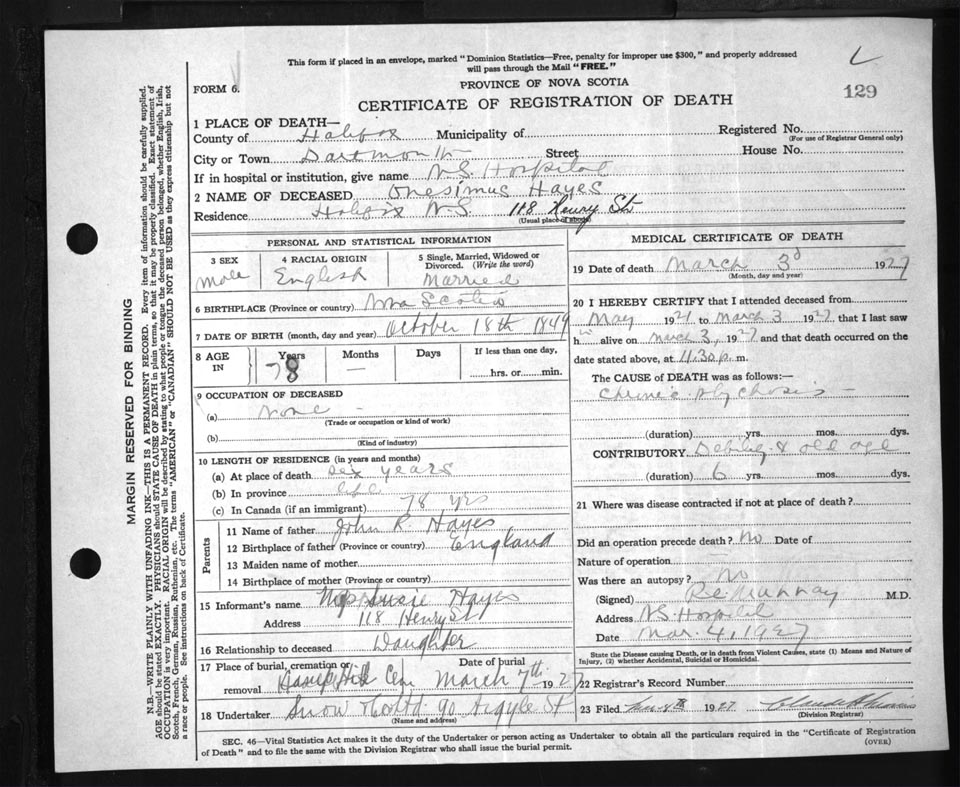 This form if placed in an envelope, marked "Dominion Statistics—Free, penalty for improper use $300," and properly addressed
will pass through the Mail "FREE."
L
129
FORM 6.
PROVINCE OF NOVA SCOTIA
CERTIFICATE OF REGISTRATION OF DEATH
1 PLACE OF DEATH—
County of Halifax Municipality of Registered No.
(For use of Registrar General only)
City or Town Dartmouth Street House No.
If in hospital or institution, give name N.S. Hospital
2 NAME OF DECEASED Onesimus Hayes
Residence Halifax N.S. 118 Henry St
(Usual place of abode)
PERSONAL AND STATISTICAL INFORMATION
3 SEX
Male
4 RACIAL ORIGIN
English
5 Single, Married, Widowed or
Divorced. (Write the word)
Married
6 BIRTHPLACE (Province or country) Nova Scotia
7 DATE OF BIRTH (month, day and year) October 18th 1849
8 AGE
IN
Years
78
Months
—
Days
If less than one day,
hrs. or min.
9 OCCUPATION OF DECEASED
(a) None -
(Trade or occupation or kind of work)
(b)
(Kind of industry)
10 LENGTH OF RESIDENCE (in years and months)
(a) At place of death six years
(b) In province life
(c) In Canada (if an immigrant) 78 yrs
Parents
11 Name of father John R. Hayes
12 Birthplace of father (Province or country) England
13 Maiden name of mother
14 Birthplace of mother (Province or country)
15 Informant's name Susie Hayes
Address 118 Henry St
16 Relationship to deceased Daughter
17 Place of burial, cremation or
removal Hill Cem
Date of burial
March 7th 1927
18 Undertaker Snow & Co Ltd 90 Argyle St
(Name and address)
MEDICAL CERTIFICATE OF DEATH
19 Date of death March 3d 1927
(Month, day and year)
20 I HEREBY CERTIFY that I attended deceased from
May 1921 to March 3 1927 that I last saw
him alive on March 3, 1927 and that death occurred on the
date stated above, at 11.30 p. m.
The CAUSE of DEATH was as follows:—
Chronic Psychosis
(duration) yrs. mos. dys.
CONTRIBUTORY Debility & old age
(duration) 6 yrs. mos. dys.
21 Where was disease contracted if not at place of death?
Did an operation precede death? No Date of
Nature of operation
Was there an autopsy? No
(Signed) M.D.
Address N.S. Hospital
Date Mar. 4, 1927
State the Disease causing Death, or in death from Violent Causes, state (1) Means and Nature of
Injury, (2) whether Accidental, Suicidal or Homicidal.
22 Registrar's Record Number
23 Filed 1927
(Division Registrar)
SEC. 46—Vital Statistics Act makes it the duty of the Undertaker or person acting as Undertaker to obtain all the particulars required in the "Certificate of Registration
of Death" and to file the same with the Division Registrar who shall issue the burial permit.
(OVER)
MARGIN RESERVED FOR BINDING
N.B.—WRITE PLAINLY WITH UNFADING INK—THIS IS A PERMANENT RECORD. Every item of information should be carefully supplied.
AGE should be stated EXACTLY. PHYSICIANS should STATE CAUSE OF DEATH in plain terms, so that it may be properly classified. Exact statement of
OCCUPATION is very important. RACIAL ORIGIN will be described by stating to what people or tongue the deceased person belonged, whether English, Irish,
Scotch, French, German, Russian, Ruthenian, etc. The terms "AMERICAN" or "CANADIAN" SHOULD NOT BE USED as they express citizenship but not
a race or people. See instructions on back of Certificate.